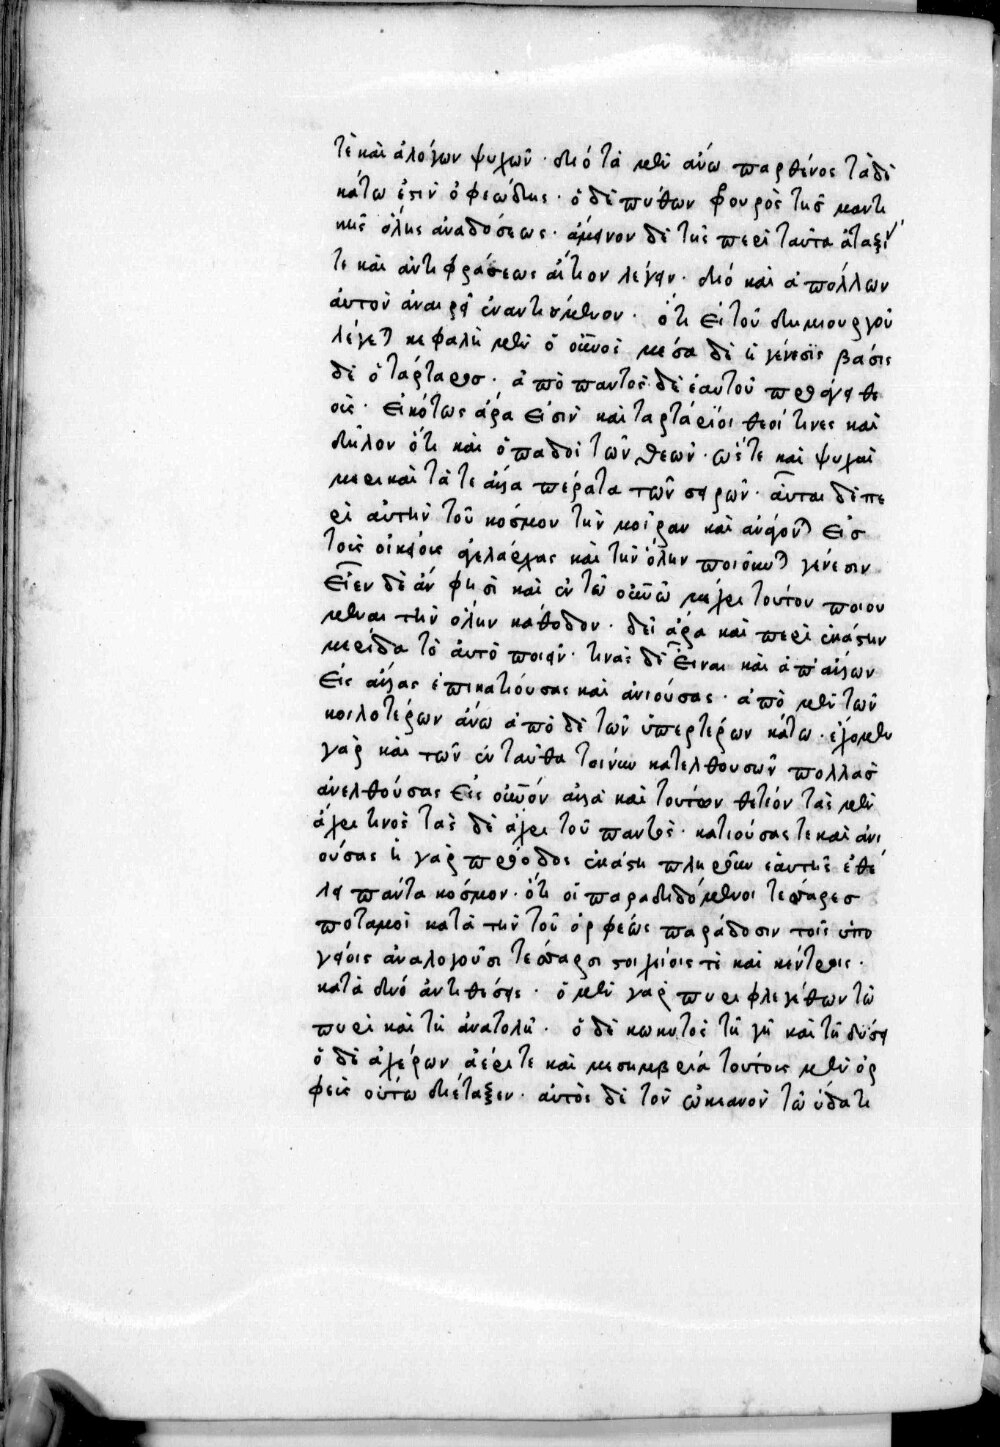 τὲ καὶ ἀλόγων ψυχῶν· διό τὰ μὲν ἀνω παρθένος τὰ δὲ
κάτω ἐστὶν ὀφεώδης· ὁ δὲ πύθων φρουρὸς τῆς μαντι
κῆς ὅλης ἀναδόσεως· ἄμεινον δὲ τῆς περὶ ταῦτα ἀταξί
τε καὶ ἀντιφράσεως αἴτιον λέγειν· διό καὶ ἀπόλλων
ἀυτὸν ἀναιρεῖ ἐναντιούμενον· ὅτι εἰ τοῦ δημιουργοῦ
λέγεται κεφαλὴ μὲν ὁ οὐρανός μέσα δὲ ἡ γένεσις βάσις
δὲ ὁ τάρταρος· ἀπὸ παντὸς δὲ ἑαυτοῦ προάγει θε
οὺς· εἰκότως ἄρα εἰσὶν καὶ ταρτάριοι θεοί τινες καὶ
δῆλον ὅτι καὶ ὀπαδοὶ τῶν θεῶν· ὥστε καὶ ψυχαὶ
μερικαὶ τά τε ἄλλα πέρατα τῶν σειρῶν· αὗται δὲ πε
ρὶ αὐτὴν τοῦ κόσμου τὴν μοῖραν καὶ ἀνάγονται εἰσ
τοὺς οἰκείους ἀγελάρχας καὶ τὴν ὅλην ποιοῦνται γένεσιν
εἶεν δὲ ἄν φησὶ καὶ ἐν τῶ οὐρανῶ μέχρι τούτου ποιου
μεναι τὴν ὅλην κάθοδον· δεῖ ἄρα καὶ περὶ ἑκάστην
μερίδα τὸ ἀυτὸ ποιεῖν· τινὰς δὲ εἶναι καὶ ἀπ' ἄλλων
εἰς ἄλλας ἐπικατιούσας καὶ ἀνιούσας· ἀπὸ μὲν τῶν
κοιλοτέρων ἄνω ἀπὸ δὲ τῶν ὑπερτέρων κάτω· ἔχομεν
γὰρ καὶ τῶν ἐνταῦθα τοίνυν κατελθουσῶν πολλὰς
ἀνελθούσας εἰς οὐρανόν ἀλλὰ καὶ τούτων θετέον τὰς μὲν
ἄχρι τινὸς τὰς δὲ ἄχρι τοῦ παντὸς· κατιούσας τε καὶ ἀνι
ούσας ἡ γὰρ πρόοδος ἑκάστη πληροῦν ἑαυτῆς ἐθέ
λει πάντα κόσμον· ὅτι οἱ παραδιδόμενοι τέσσαρεσ
ποταμοὶ κατὰ τὴν τοῦ ὀρφέως παράδοσιν τοῖς ὑπο
γείοις ἀναλογοῦσι τέσσαρσι στοιχείοις τὲ καὶ κέντροις·
κατὰ δυό ἀντιθέσεις· ὁ μὲν γὰρ πυριφλεγέθων τῶ
πυρὶ καὶ τῆ ἀνατολῆ· ὁ δὲ κωκυτὸς τῆ γῆ καὶ τῆ δύσει
ὁ δὲ ἀχέρων ἀέρι τε καὶ μεσημβρία τούτοις μὲν ὀρ
φεὺς οὕτω διέταξεν· αὐτὸς δὲ τὸν ὠκεανὸν τῶ ὕδατι